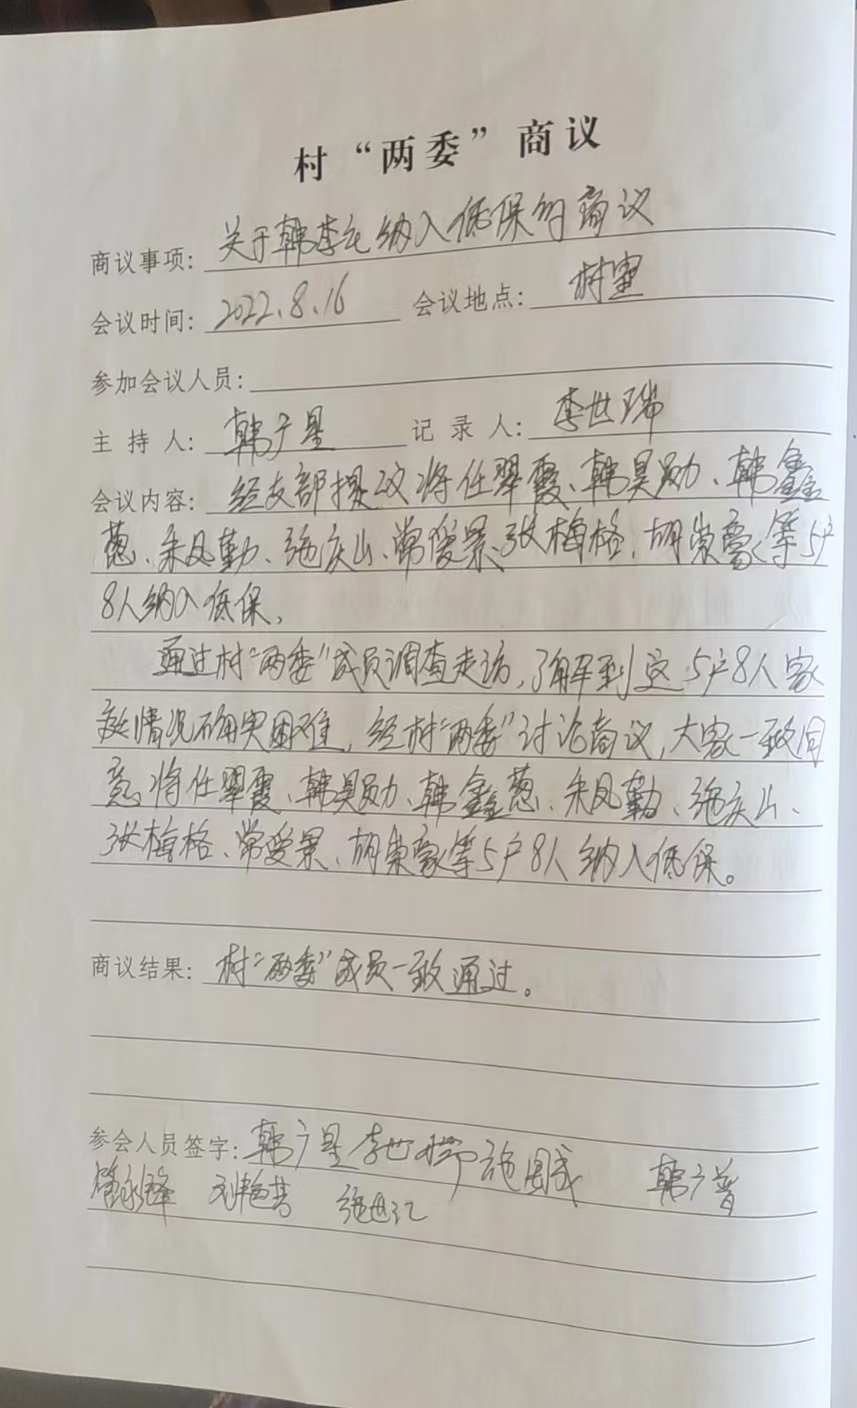 村“两委”商议
商议事项：关于韩李屯纳入低保的商议
会议时间：2022.8.16 会议地点：村室
参加会议人员：
主持人：韩广星 记录人：李世瑞
会议内容：经支部提议将任翠霞、韩昊勋、韩鑫
葱、朱凤勤、施庆山、常爱景、张梅格、胡崇豪等5户
8人纳入低保，
通过村“两委”成员调查走访，了解到这5户8人家
庭情况确实困难，经村“两委”讨论商议，大家一致同
意将任翠霞、韩昊勋、韩鑫葱、朱凤勤、施庆山、
张梅格、常爱景、胡崇豪等5户8人纳入低保。
商议结果：村“两委”成员一致通过。
参会人员签字：韩广星 李世瑞 施国成 韩广普
施世江